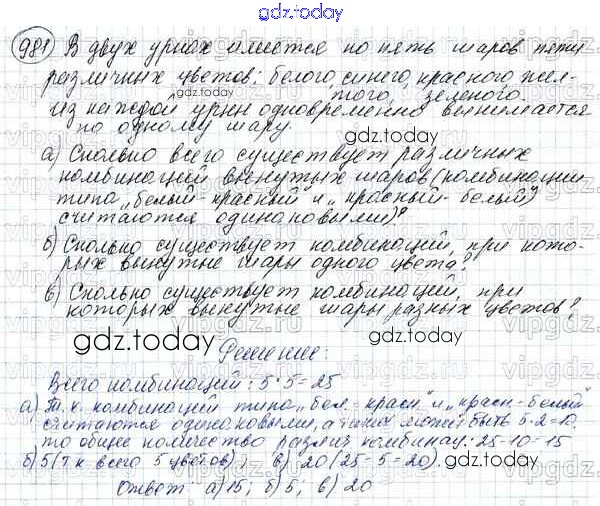 gdz.today
981 В двух урнах имеется по пять шаров пяти
различных цветов: белого, синего, красного жел-
gdz.today
того, зеленого.
из каждой урны одновременно вынимается
по одному шару.
gdz.today
а) Сколько всего существует различных
комбинаций вынутых шаров (комбинации
типа „белый-красный" и „красный-белый"
считаются одинаковыми)?
б) Сколько существует комбинаций, при кото-
рых вынутые шары одного цвета?
в) Сколько существует комбинаций, при
которых вынутые шары разных цветов?
gdz.today
Решение:
Всего комбинаций: 5·5=25
а) Т.к. комбинаций типа „бел.-красн." и „красн.-белый"
считаются одинаковыми, а таких может быть 5·2=10,
то общее количество различ комбинац.: 25-10=15
б) 5 (т.к всего 5 цветов); в) 20 (25-5=20).
Ответ: а) 15; б) 5; в) 20
gdz.today
vipgdz.ru